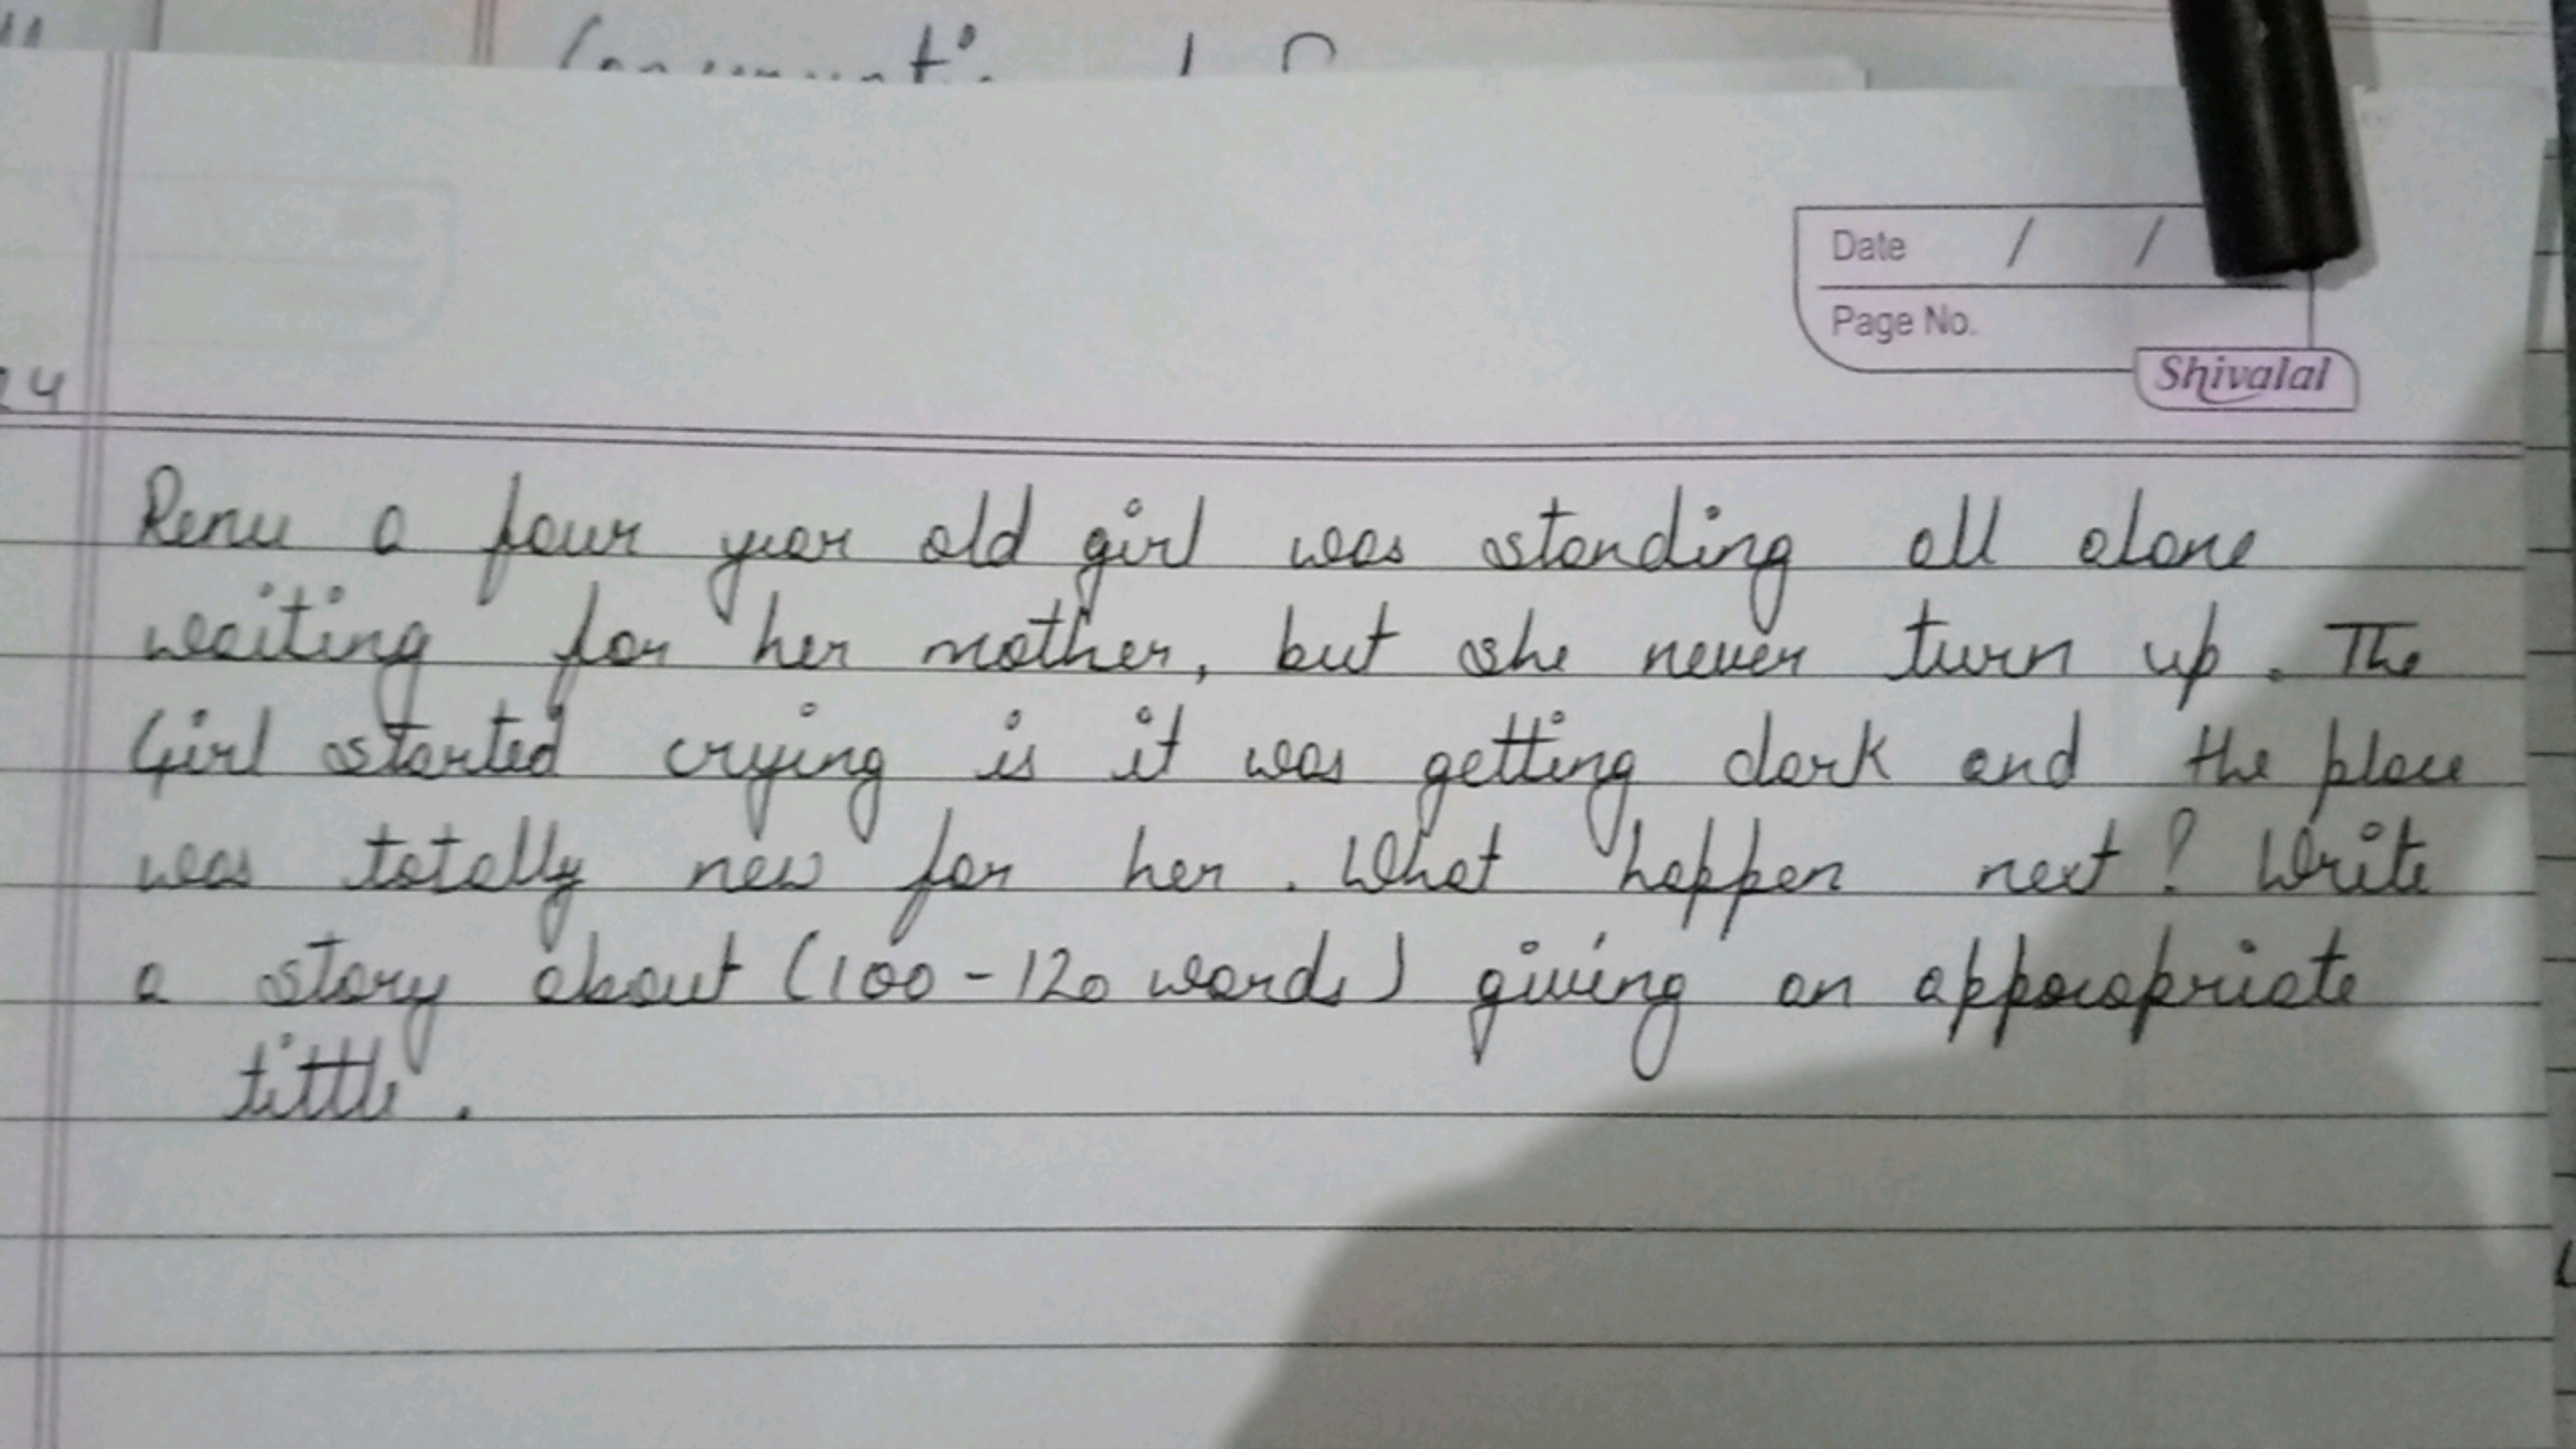 24
Date / /
Page No.
Shivalal
Renu a four year old girl was standing all alone
waiting for her mother, but she never turn up. The
Girl started crying is it was getting dark and the place
was totally new for her. What happen next? Write
a story about (100-120 words) giving an apporopriate
tittle.